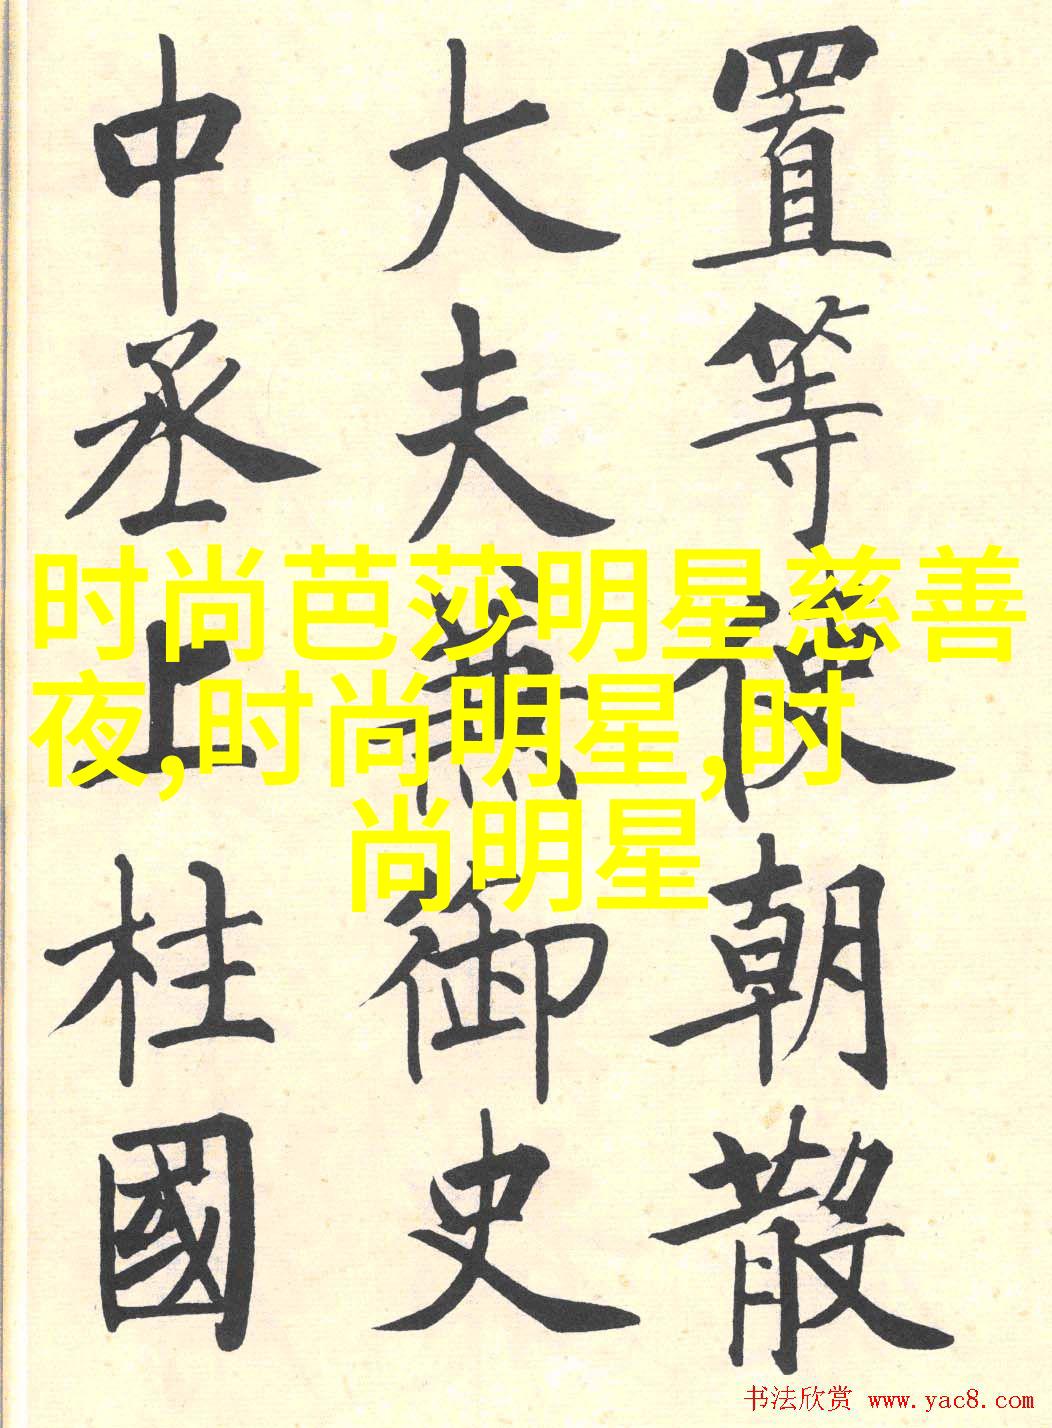 置等使朝散
大夫兼御史
中丞上柱國
时尚芭莎明星慈善
夜,时尚明星,时
尚明星
书法欣赏 www.yac8.com